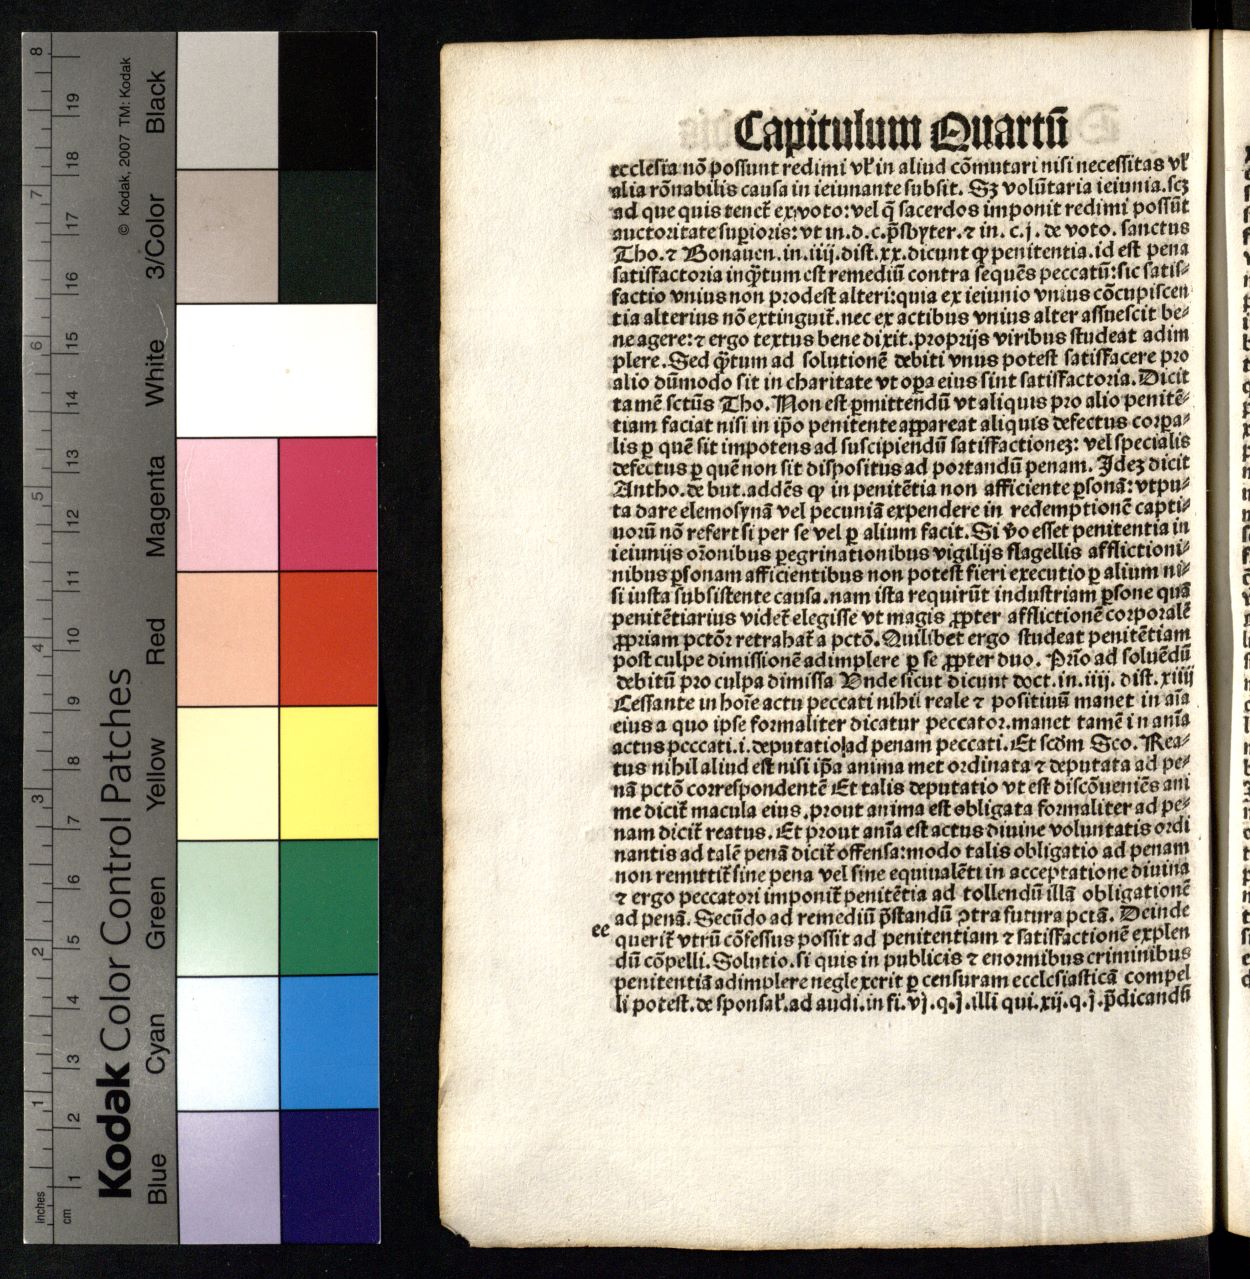 Capitulum Quartũ
ecclesia nõ possunt redimi vl̕ in aliud cõmutari nisi necessitas vl̕
alia rõnabilis causa in ieiunante subsit. Sꝫ volũtaria ieiunia.scꝫ
ad que quis tenet̃ ex voto: vel q̃ sacerdos imponit redimi possũt
auctoritate supioris: vt in.d.c.p̃sbyter.⁊ in. c.j. de voto. sanctus
Tho.⁊ Bonauen.in.iiij.dist.xx.dicunt ꝙ penitentia.id est pena
satisfactoria inq̃tum est remediũ contra sequẽs peccatũ:sic satis⸗
factio vnius non prodest alteri:quia ex ieiunio vnius cõcupiscen
tia alterius nõ extinguit̃.nec ex actibus vnius alter assuescit be⸗
ne agere:⁊ ergo textus bene dixit.proprijs viribus studeat adim
plere.Sed q̃tum ad solutionẽ debiti vnus potest satisfacere pro
alio dũmodo sit in charitate vt oꝑa eius sint satisfactoria.Dicit
tamẽ sctũs Tho.Non est ꝑmittendũ vt aliquis pro alio penitẽ⸗
tiam faciat nisi in ip̃o penitente appareat aliquis defectus corpa⸗
lis ꝑ quẽ sit impotens ad suscipiendũ satisfactioneꝫ: vel specialis
defectus ꝑ quẽ non sit dispositus ad portandũ penam. Ideꝫ dicit
Antho.de but.addẽs ꝙ in penitẽtia non afficiente ꝑsonã: vtpu⸗
ta dare elemosynã vel pecuniã expendere in redemptionẽ capti⸗
uorũ nõ refert si per se vel ꝑ alium facit.Si ṽo esset penitentia in
ieiunijs orõnibus ꝑegrinationibus vigilijs flagellis afflictioni⸗
nibus ꝑsonam afficientibus non potest fieri executio ꝑ alium ni⸗
si iusta subsistente causa.nam ista requirũt industriam ꝑsone quã
penitẽtiarius videt̃ elegisse vt magis ꝓpter afflictionẽ corporalẽ
ꝓpriam pctõꝝ retrahat̃ a pctõ.Quilibet ergo studeat penitẽtiam
post culpe dimissionẽ adimplere ꝑ se ꝓpter duo. Prĩo ad soluẽdũ
debitũ pro culpa dimissa Vnde sicut dicunt doct.in.iiij. dist.xiiij
Cessante in hoĩe actu peccati nihil reale ⁊ positiuũ manet in aĩa
eius a quo ipse formaliter dicatur peccator.manet tamẽ in anĩa
actus pcccati.i.deputatio ad penam peccati.Et scd̃m Sco. Rea⸗
tus nihil aliud est nisi ip̃a anima met ordinata ⁊ deputata ad pe⸗
nã pctõ correspondentẽ Et talis deputatio vt est discõueniẽs ani
me dicit̃ macula eius.prout anima est obligata formaliter ad pe⸗
nam dicit̃ reatus. Et prout anĩa est actus diuine voluntatis ordi
nantis ad talẽ penã dicit̃ offensa:modo talis obligatio ad penam
non remittit̃ sine pena vel sine equiualẽti in acceptatione diuina
⁊ ergo peccatori imponit̃ penitẽtia ad tollendũ illã obligationẽ
ad penã. Secũdo ad remediũ p̃standũ ꝯtra futura pctã. Deinde
ee querit̃ vtrũ cõfessus possit ad penitentiam ⁊ satisfactionẽ explen
dũ cõpelli.Solutio.si quis in publicis ⁊ enormibus criminibus
penitentiã adimplere neglexerit ꝑ censuram ecclesiasticã compel
li potest.de sponsal̕.ad audi.in fi.vj.q.j.illi qui.xij.q.j.p̃dicandũ
Kodak Color Control Patches
© Kodak, 2007 TM: Kodak
Blue
Cyan
Green
Yellow
Red
Magenta
White
3/Color
Black
inches
1 2 3 4 5 6 7 8
cm
1 2 3 4 5 6 7 8 9 10 11 12 13 14 15 16 17 18 19